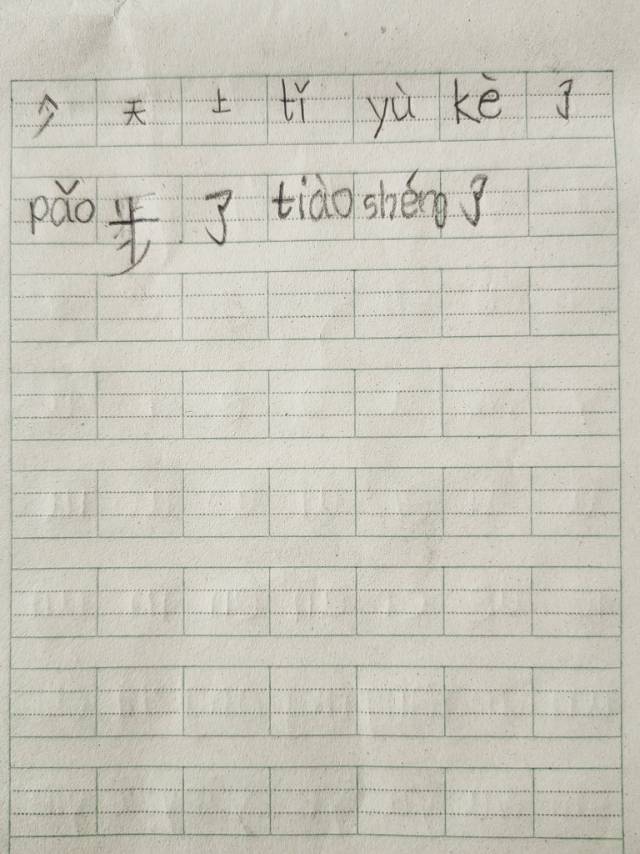 今天上tǐ yù kè了
pǎo步了tiào shéng了